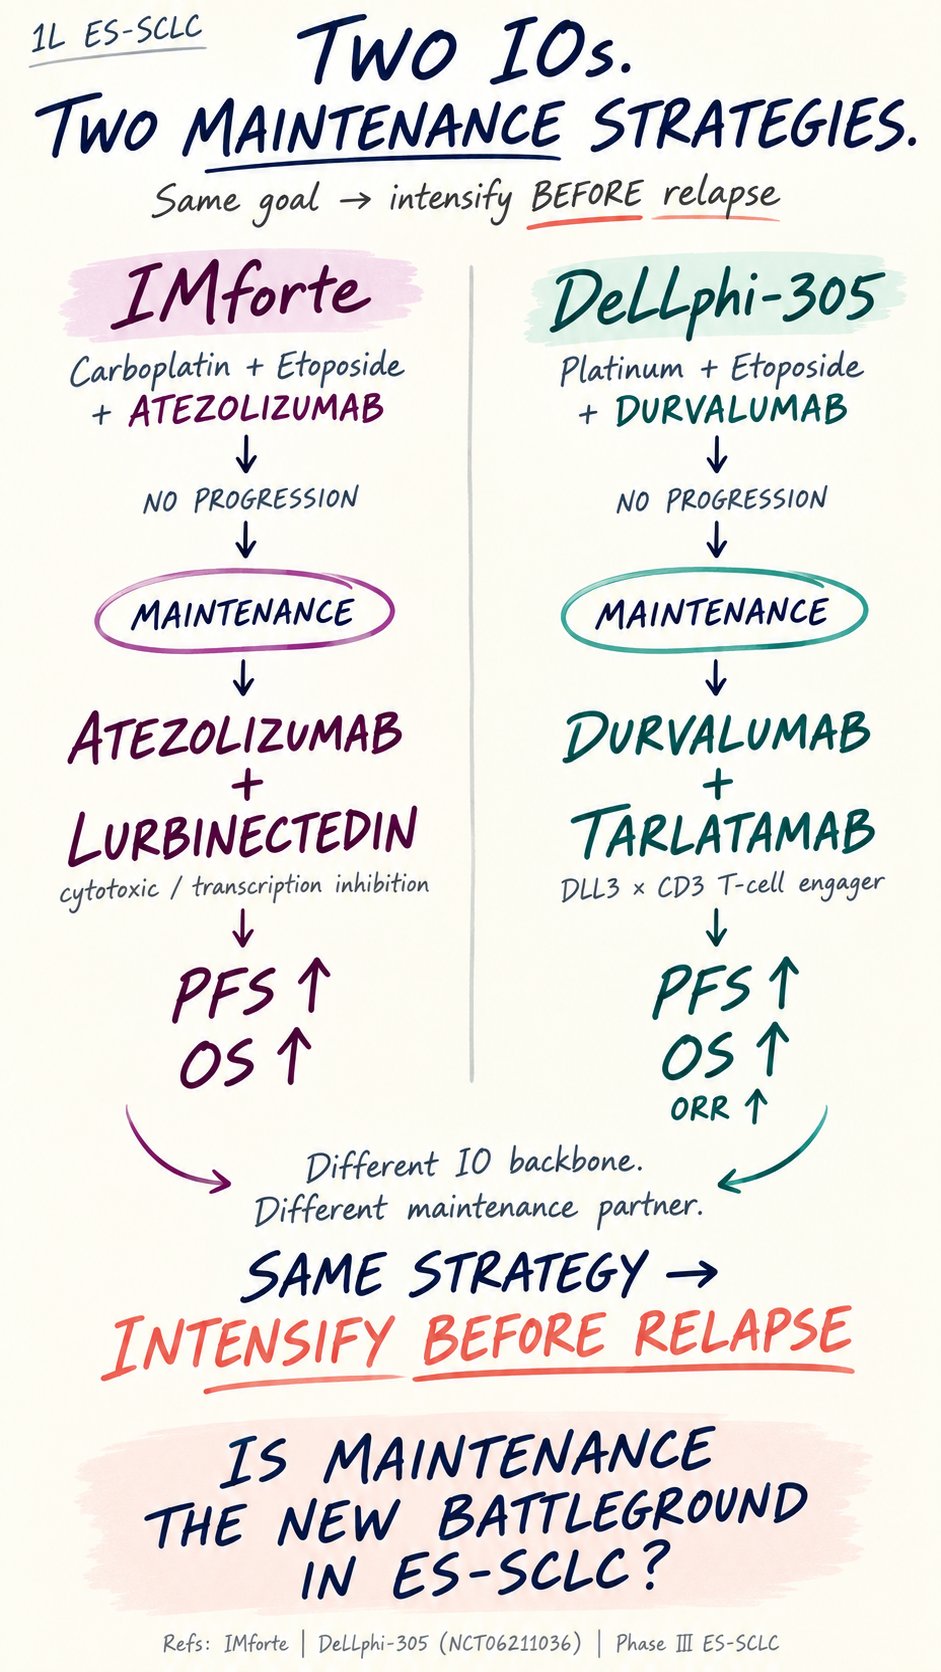 1L ES-SCLC
TWO IOs.
TWO MAINTENANCE STRATEGIES.
Same goal → intensify BEFORE relapse
IMforte
Carboplatin + Etoposide
+ ATEZOLIZUMAB
↓
NO PROGRESSION
↓
MAINTENANCE
↓
ATEZOLIZUMAB
+
LURBINECTEDIN
cytotoxic / transcription inhibition
↓
PFS ↑
OS ↑
DeLLphi-305
Platinum + Etoposide
+ DURVALUMAB
↓
NO PROGRESSION
↓
MAINTENANCE
↓
DURVALUMAB
+
TARLATAMAB
DLL3 × CD3 T-cell engager
↓
PFS ↑
OS ↑
ORR ↑
Different IO backbone.
Different maintenance partner.
SAME STRATEGY →
INTENSIFY BEFORE RELAPSE
IS MAINTENANCE
THE NEW BATTLEGROUND
IN ES-SCLC?
Refs: IMforte | DeLLphi-305 (NCT06211036) | Phase III ES-SCLC